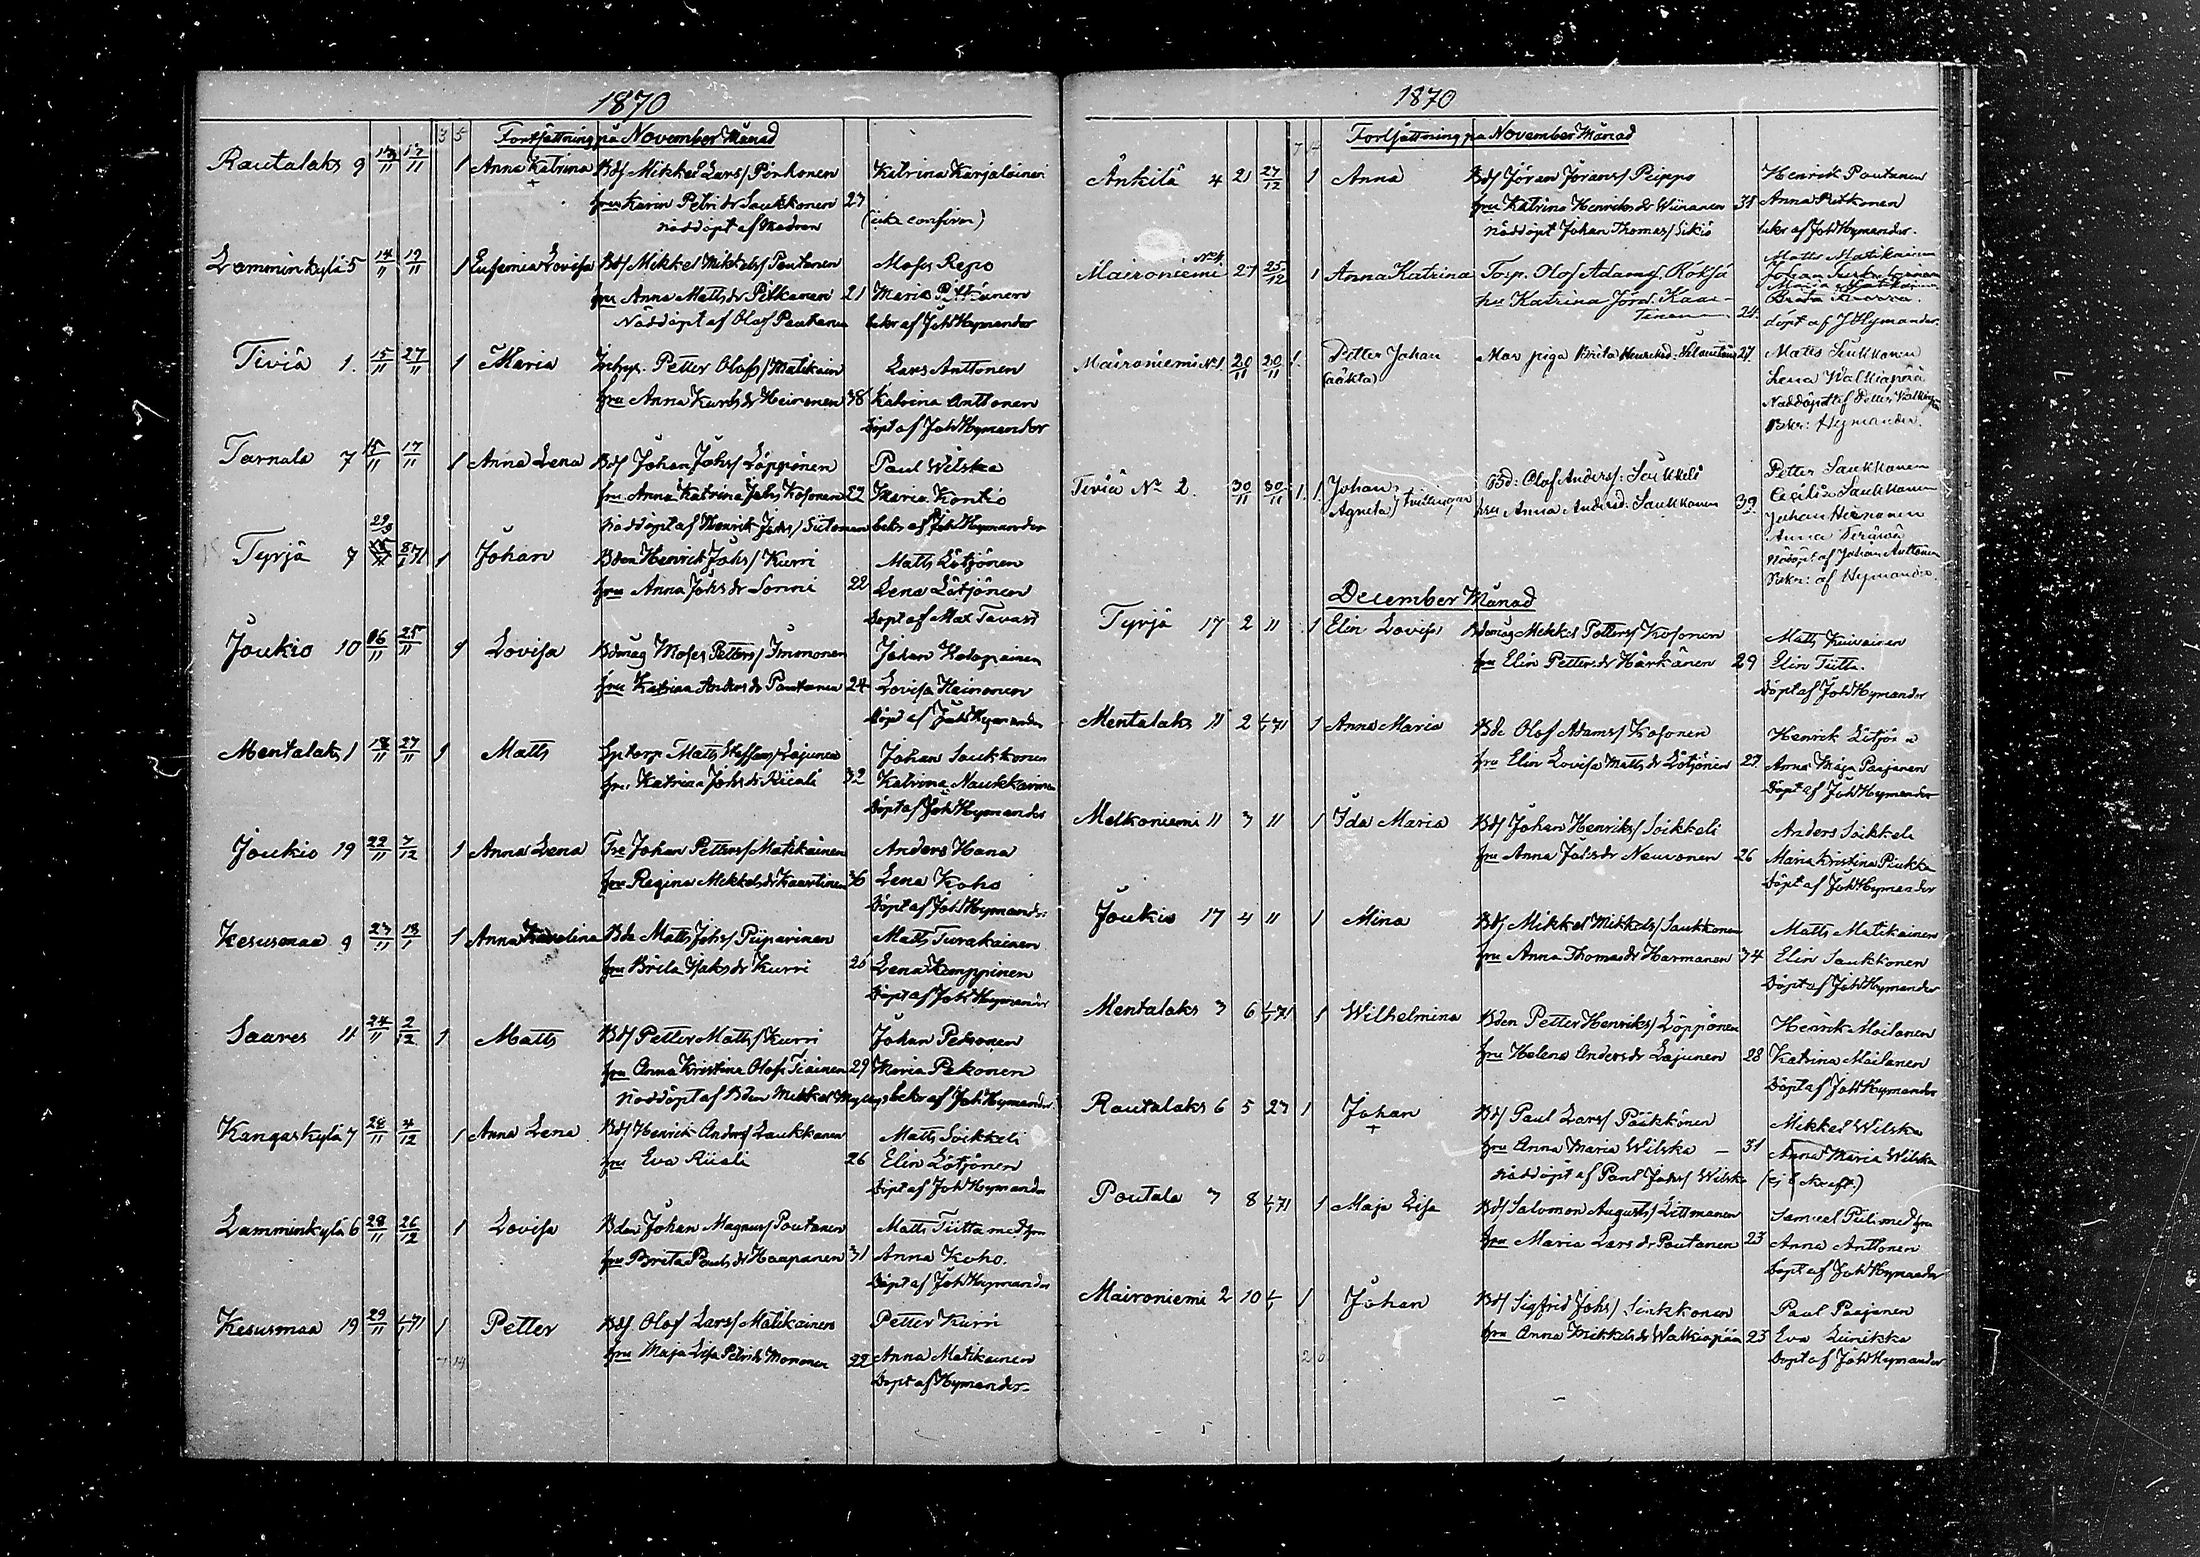 1870
3 5 Fortsättning på November Månad
Rautalaks 9 13/11 17/11 1 Anna Katrina Bds Mikkel Lars/ Pönhonen Katrina Karjalainen
+ fru Karin Petri dr Saukkonen 27
nöddöpt af Modren (icke confirm)
Lamminkylä 5 14/11 19/11 1 Eufemia Lovisa Bds Mikkel Mikkels/ Poutanen Moses Repo
fru Anna Matts dr Pitkänen 21 Maria Pitkänen
Nöddöpt af Olof Poutanen bekr af Joh Hymander
Tiviä 1. 15/11 27/11 1 Maria Inhys. Petter Olofs/ Matikain Lars Anttonen
fru Anna Kurts dr Heinonen 38 Katrina Anttonen
Döpt af Joh Hymander
Tarnala 7 15/11 17/11 1 Anna Lena Bds Johan Johs/ Löppönen Paul Wilska
fru Anna Katrina Johs Kosonen 22 Maria Kontio
Nöddöpt af Henrik Johs/ Siitonen bekr af Joh Hymander
Tyrjä 7 8/1 71 1 Johan Bden Henrick Johs/ Kurri Matts Lötjönen
fru Anna Johs dr Sormi 22 Lena Lötjönen
Döpt af Max Tavast
Joukio 10 16/11 25/11 1 Lovisa Bdmåg Moses Petters/ Immonen Johan Kolopainen
fru Katrina Anders dr Poutanen 24 Lovisa Heinonen
Döpt af Joh Hymander
Mentalaks 1 18/11 27/11 1 Matts Sptorp Matts Staffans/ Lajunen Johan Saukkonen
fru Katrina Johs dr Riiali 32 Katrina Naukkarinen
Döpt af Joh Hymander
Joukio 19 22/11 7/12 1 Anna Lena Johan Petters/ Matikainen Anders Hana
fru Regina Mikkels dr Kaartinen 36 Lena Koho
Döpt af Joh Hymander
Kesusmaa 9 23/11 13/1 1 Anna Karolina Bde Matts Johs/ Piiparinen Matts Turakainen
fru Brita Isaks dr Kurri 26 Lena Kemppinen
Döpt af Joh Hymander
Saares 11 24/11 2/12 1 Matts Bds Petter Matts/ Kurri Johan Pekonen
fru Anna Kristina Olofs Tiainen 29 Maria Pekonen
Nöddöpt af Bden Mikkel bekr af Joh Hymander
Kangaskylä 7 28/11 4/12 1 Anna Lena Bds Henrik Anders/ Laukkanen Matts Soikkeli
fru Eva Riiali 26 Elin Lötjönen
Döpt af Joh Hymander
Lamminkylä 6 28/11 26/12 1 Lovisa Bden Johan Magnus/ Poutanen Matts Tiitta med fru
fru Brita Pauls dr Haapanen 31 Anna Koho.
Döpt af Joh Hymander
Kesusmaa 19 29/11 1/1 71 1 Petter Bds Olof Lars/ Matikainen Petter Kurri
fru Maja Lisa Petri dr Mononen 22 Anna Matikainen
7 14 Döpt af Hymander
1870
7 14 Fortsättning på November Månad
Änkilä 4 21 27/12 1 Anna Bds Jöran Jörans/ Peippo Henrick Poutanen
fru Katrina Henriks dr Winanen 31 Anna Ritkonen
Nöddöpt Johan Thomas/ Sikiö bekr af Joh Hymander.
Maironiemi No 4 27 25/12 1 Anna Katrina Torp. Olof Adams/ Röksä Matts Matikainen
Johan
hu Katrina Jörd. Kaar- Maria Matikainen
tinen 24. Brita
döpt af J Hymander.
Maironiemi No 1. 20/11 20/11 1. Petter Johan Mor piga Brita Henricsd: 27 Matts Sinkkonen
(oäkta) Lena Walkiapää
Nöddöpt af Petter Walkiapää
Bekr: Hymander.
Tiviä No 2. 30/11 30/11 1. 1. Johan Bd: Olof Anders/: Soikkeli Petter Saukkonen
Agneta } tvillingar hu Anna Andersd. Saukkonen 39. Cecilia Saukkonen
Johan Heinonen
Anna
Nödöpt af Johan Anttonen
Bekr: af Hymander.
December Månad
Tyrjä 17 2 11 1 Elin Lovisa Bdmåg Mikkel Petters/ Kosonen Matts Kuivainen
fru Elin Petters dr Härkänen 29 Elin Tiitta.
Döpt af Joh Hymander
Mentalaks 11 2 1/1 71 1 Anna Maria Bde Olof Adams/ Kosonen Henrik Lötjönen
fru Elin Lovisa Matts dr Lötjönen 27 Anna Maja Paajanen
Döpt af Joh Hymander
Melkoniemi 11 3 11 1 Ida Maria Bds Johan Henriks/ Soikkeli Anders Soikkeli
fru Anna Johs dr Neuvonen 26 Maria Kristina Piukka
Döpt af Joh Hymander
Joukio 17 4 11 1 Mina Bds Mikkel Mikkels/ Saukkonen Matts Matikainen
fru Anna Thomas dr Harmanen 34 Elin Saukkonen
Döpt af Joh Hymander
Mentalaks 3 6 1/1 71 1 Wilhelmina Bden Petter Henriks/ Löppönen Henrik Moilanen
fru Helena Anders dr Lajunen 28 Katrina Moilanen
Döpt af Joh Hymander
Rautalaks 6 5 27 1 Johan Bds Paul Lars/ Pääkkönen Mikkel Wilska
+ fru Anna Maria Wilska — 31 Anna Maria Wilska
Nöddöpt af Paul Johs/ Wilska
Poutala 3 8 1/1 71 1 Maja Lisa Bds Salomon Augusts/ Littmanen Samuel Puli med fru
fru Maria Lars dr Poutanen 23 Anna Anttonen
Döpt af Joh Hymander
Maironiemi 2 10 1/1 1 Johan Bds Sigfrid Johs/ Sinkkonen Paul Paajanen
fru Anna Mikkels dr Walkiapää 23 Eva Liinikka
2 0 Döpt af Joh Hymander